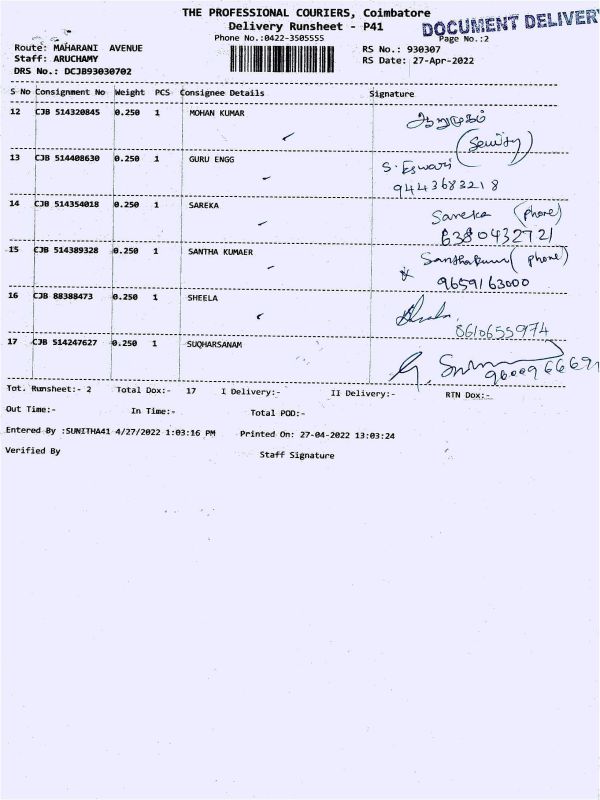 THE PROFESSIONAL COURIERS, Coimbatore
Delivery Runsheet - P41
DOCUMENT DELIVERY
Phone No.:0422-3505555
Page No.:2
Route: MAHARANI AVENUE
RS No.: 930307
Staff: ARUCHAMY
RS Date: 27-Apr-2022
DRS No.: DCJB93030702
S No Consignment No Weight PCS Consignee Details Signature
12 CJB 514320845 0.250 1 MOHAN KUMAR ஆறுமுகம்
(Security)
13 CJB 514408630 0.250 1 GURU ENGG S. Eswari
9443683218
14 CJB 514354018 0.250 1 SAREKA Sareka (phone)
6380432721
15 CJB 514389328 0.250 1 SANTHA KUMAER Santhakumar (phone)
9659163000
16 CJB 88388473 0.250 1 SHEELA
8610655974
17 CJB 514247627 0.250 1 SUQHARSANAM G.
960096669
Tot. Runsheet:- 2 Total Dox:- 17 I Delivery:- II Delivery:- RTN Dox:-
Out Time:- In Time:- Total POD:-
Entered By :SUNITHA41 4/27/2022 1:03:16 PM Printed On: 27-04-2022 13:03:24
Verified By Staff Signature